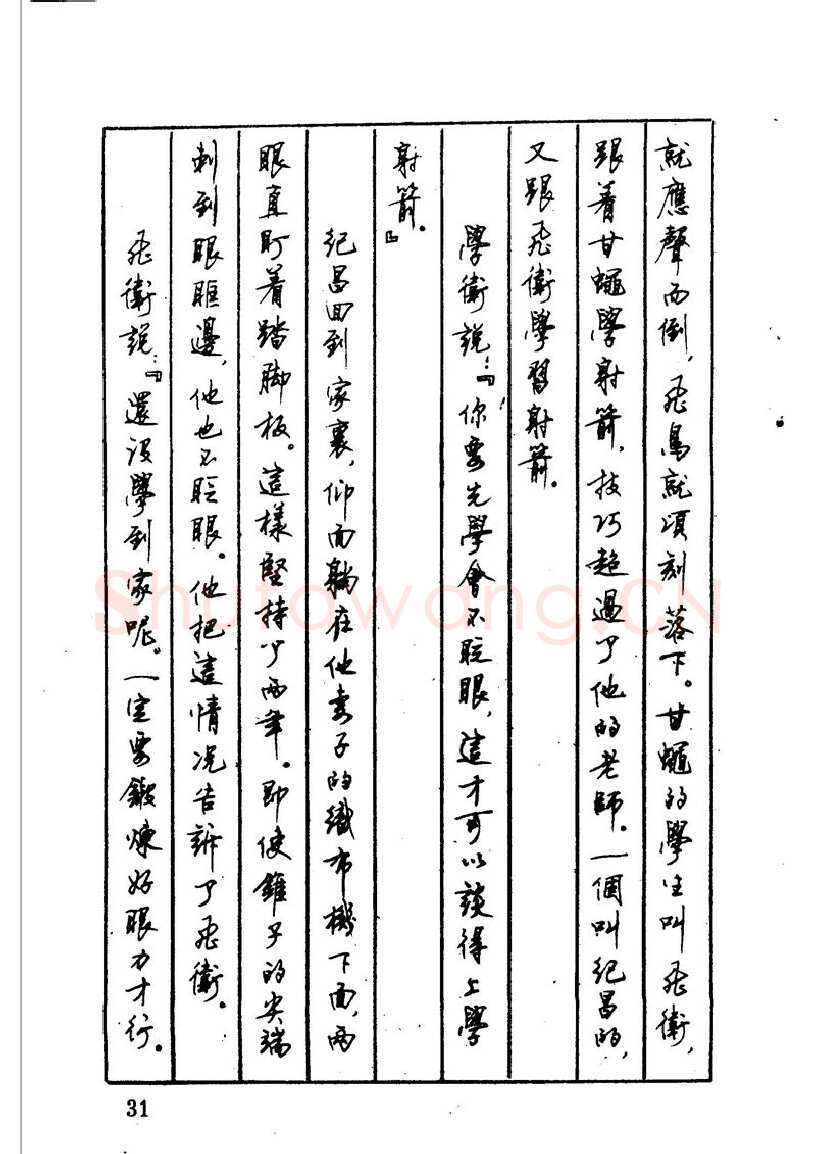 就應聲而倒，飛鳥就頃刻落下。甘蠅的學生叫飛衛，
跟着甘蠅學射箭，技巧超過了他的老師。一個叫紀昌的，
又跟飛衛學習射箭。
學衛説：『你要先學會不眨眼，這才可以談得上學
射箭。』
紀昌回到家裏，仰面躺在他妻子的織布機下面，兩
眼直盯着踏脚板。這樣堅持了兩年。即使錐子的尖端
刺到眼眶邊，他也不眨眼。他把這情况告訴了飛衛。
飛衛説：『還没學到家呢。一定要鍛煉好眼力才行。
31
Shufawang.CN